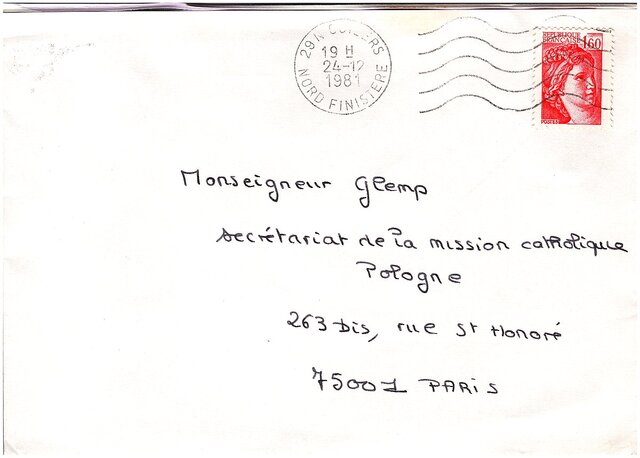 29 N
NORD FINISTERE
19 H
24-12
1981
REPUBLIQUE
FRANCAISE
1,60
POSTES
Monseigneur Glemp
secrétariat de la mission catholique
Pologne
263 bis, rue St Honoré
75001 PARIS